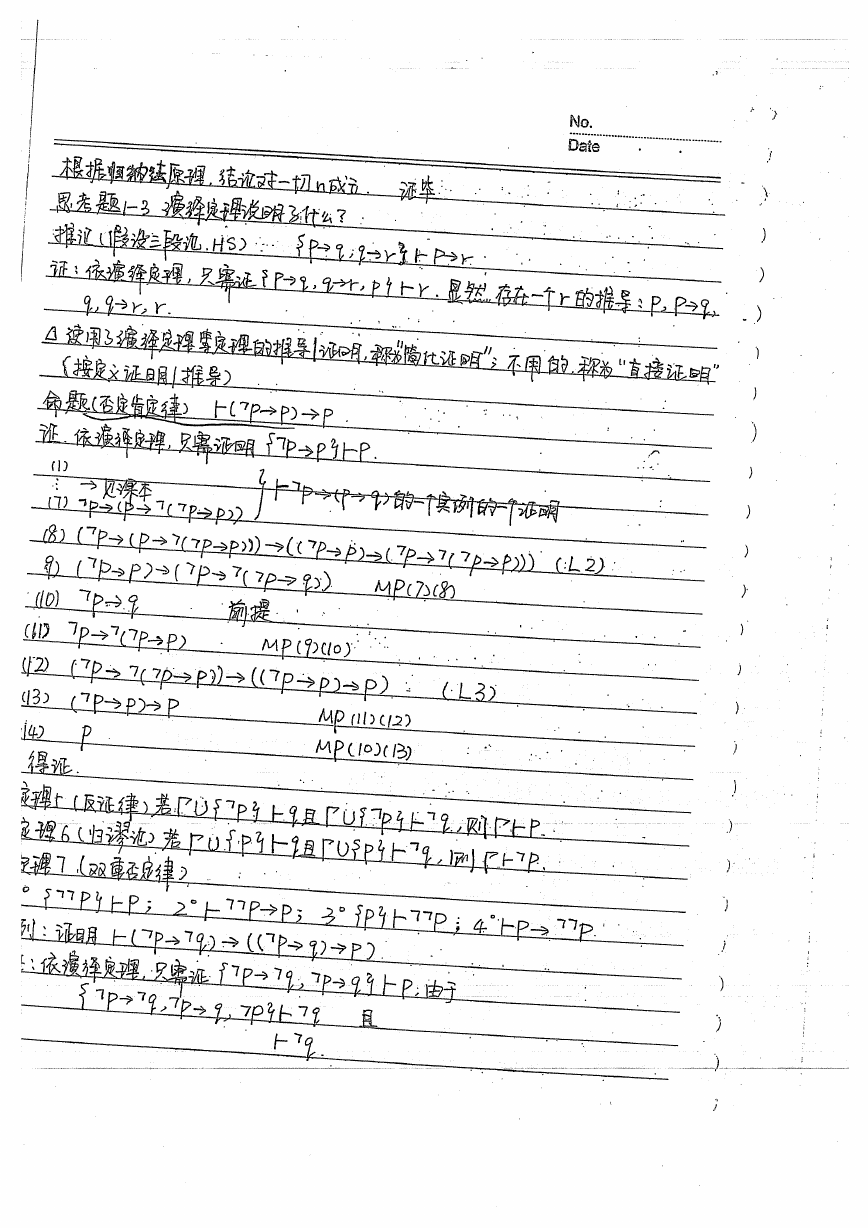 No.
Date
根据归纳法原理,结论对一切n成立. 证毕.
思考题1-3 演绎定理说明了什么?
推论(假设三段论.HS) {p→q,q→r}⊢p→r.
证:依演绎定理,只需证{p→q,q→r,p}⊢r.显然,存在一个r的推导:p,p→q,
q,q→r,r.
△使用了演绎定理等定理的推导/证明,称为"简化证明";不用的,称为"直接证明"
(按定义证明/推导)
命题(否定肯定律) ⊢(¬p→p)→p
证.依演绎定理,只需证明{¬p→p}⊢p.
(1)
⋮ →见课本 } ⊢¬p→(p→q)的一个实例的一个证明
(7) ¬p→(p→¬(¬p→p))
(8) (¬p→(p→¬(¬p→p)))→((¬p→p)→(¬p→¬(¬p→p))) (L2)
9) (¬p→p)→(¬p→¬(¬p→q)) MP(7)(8)
(10) ¬p→q 前提
(11) ¬p→¬(¬p→p) MP(9)(10)
(12) (¬p→¬(¬p→p))→((¬p→p)→p) (L3)
(13) (¬p→p)→p MP(11)(12)
14) p MP(10)(13)
得证.
定理5(反证律)若Γ∪{¬p}⊢q且Γ∪{¬p}⊢¬q,则Γ⊢p.
定理6(归谬论)若Γ∪{p}⊢q且Γ∪{p}⊢¬q,则Γ⊢¬p.
定理7(双重否定律)
° {¬¬p}⊢p; 2°⊢¬¬p→p; 3°{p}⊢¬¬p; 4°⊢p→¬¬p.
列:证明⊢(¬p→¬q)→((¬p→q)→p)
:依演绎定理,只需证{¬p→¬q,¬p→q}⊢p;由于
{¬p→¬q,¬p→q,¬p}⊢¬q 且
⊢¬q.